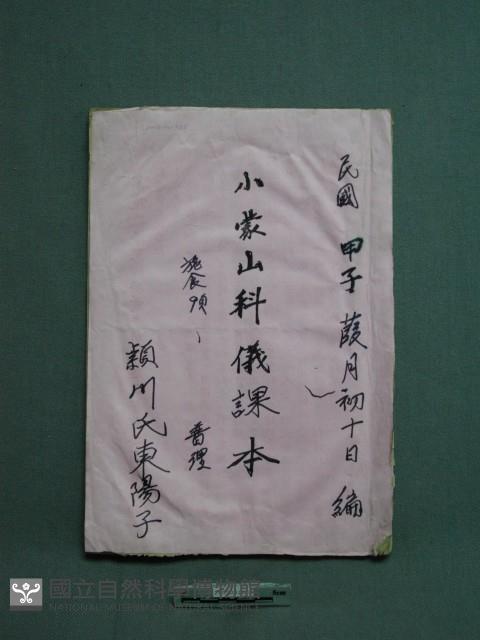 民國 甲子葭月初十日 編
小蒙山科儀課本
施食
晉理
穎川氏東陽子
國立自然科學博物館
NATIONAL MUSEUM OF NATURAL SCIENCE
5cm